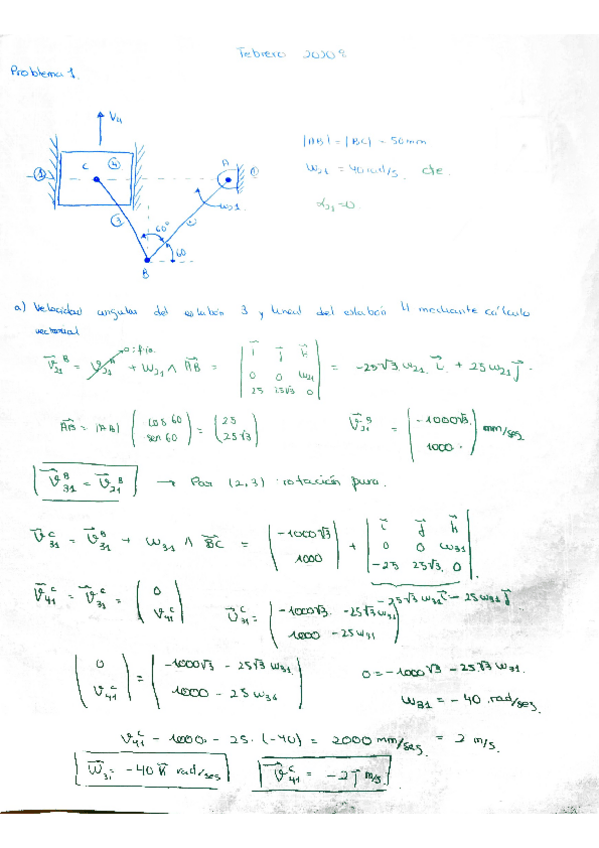 Febrero 2020
Problema 1.
V41
|AB| = |BC| = 50mm
C 4
A
1
1
ω21 = 40 rad/s. cte.
ω21
α21 = 0
3
2
60°
60
B
a) Velocidad angular del eslabón 3 y lineal del eslabón 4 mediante cálculo
vectorial
0: fijo
v⃗21^B = v⃗21^A + ω21 ∧ AB⃗ = | i⃗ j⃗ k⃗ ; 0 0 ω21 ; 25 25√3 0 | = -25√3 ω21 i⃗ + 25 ω21 j⃗
AB⃗ = |AB| ( cos 60 ; sen 60 ) = ( 25 ; 25√3 )
v⃗21^B = ( -1000√3 ; 1000 ) mm/seg
v⃗31^B = v⃗21^B → Par (2,3) rotación pura.
v⃗31^C = v⃗31^B + ω31 ∧ BC⃗ = ( -1000√3 ; 1000 ) + | i⃗ j⃗ k⃗ ; 0 0 ω31 ; -25 25√3 0 |
-25√3 ω31 i⃗ - 25 ω31 j⃗
v⃗41^C = v⃗31^C = ( 0 ; v41^C )
v⃗31^C = ( -1000√3 - 25√3 ω31 ; 1000 - 25 ω31 )
( 0 ; v41^C ) = ( -1000√3 - 25√3 ω31 ; 1000 - 25 ω31 )
0 = -1000√3 - 25√3 ω31
ω31 = -40 rad/seg.
v41^C = 1000 - 25 · (-40) = 2000 mm/seg = 2 m/s.
ω⃗31 = -40 k⃗ rad/seg
v⃗41^C = -2 j⃗ m/s.